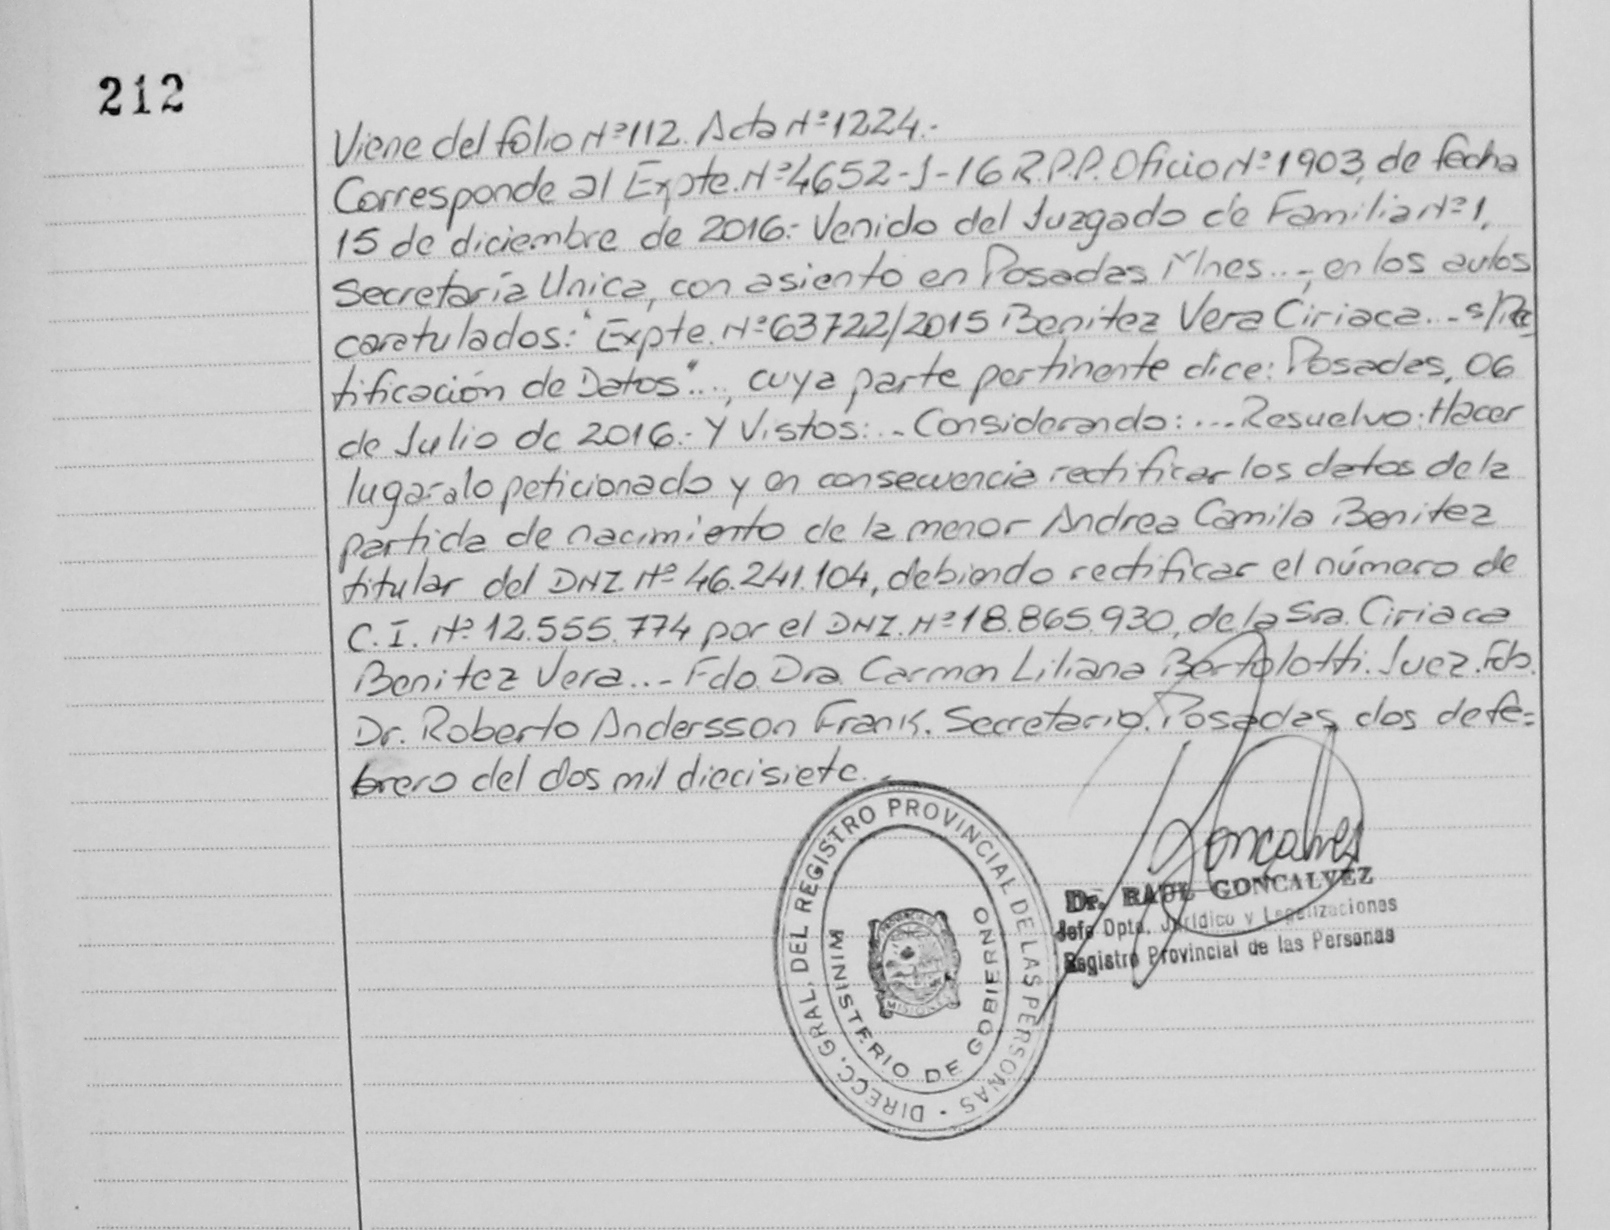 212
Viene del folio Nº112. Acta Nº1224.-
Corresponde al Expte. Nº4652-J-16 R.P.P. Oficio Nº1903, de fecha
15 de diciembre de 2016.- Venido del Juzgado de Familia Nº1,
Secretaría Unica, con asiento en Posadas Mnes...-, en los autos
caratulados: "Expte. Nº63722/2015 Benitez Vera Ciriaca...- s/Rec
tificación de Datos"..., cuya parte pertinente dice: Posadas, 06
de Julio de 2016.- Y Vistos:..- Considerando:...- Resuelvo: Hacer
lugar a lo peticionado y en consecuencia rectificar los datos de la
partida de nacimiento de la menor Andrea Camila Benitez
titular del DNI. Nº 46.241.104, debiendo rectificar el número de
C.I. Nº 12.555.774 por el DNI. Nº18.865.930, de la Sra. Ciriaca
Benitez Vera...- Fdo. Dra. Carmen Liliana Bertolotti. Juez. Fdo.
Dr. Roberto Andersson Frank. Secretario. Posadas, dos de fe-
brero del dos mil diecisiete.-
Goncalvez
Dr. RAUL GONCALVEZ
Jefe Dpto. Jurídico y Legalizaciones
Registro Provincial de las Personas
DIRECC. GRAL. DEL REGISTRO PROVINCIAL DE LAS PERSONAS -
MINISTERIO DE GOBIERNO
PROVINCIA DE
MISIONES